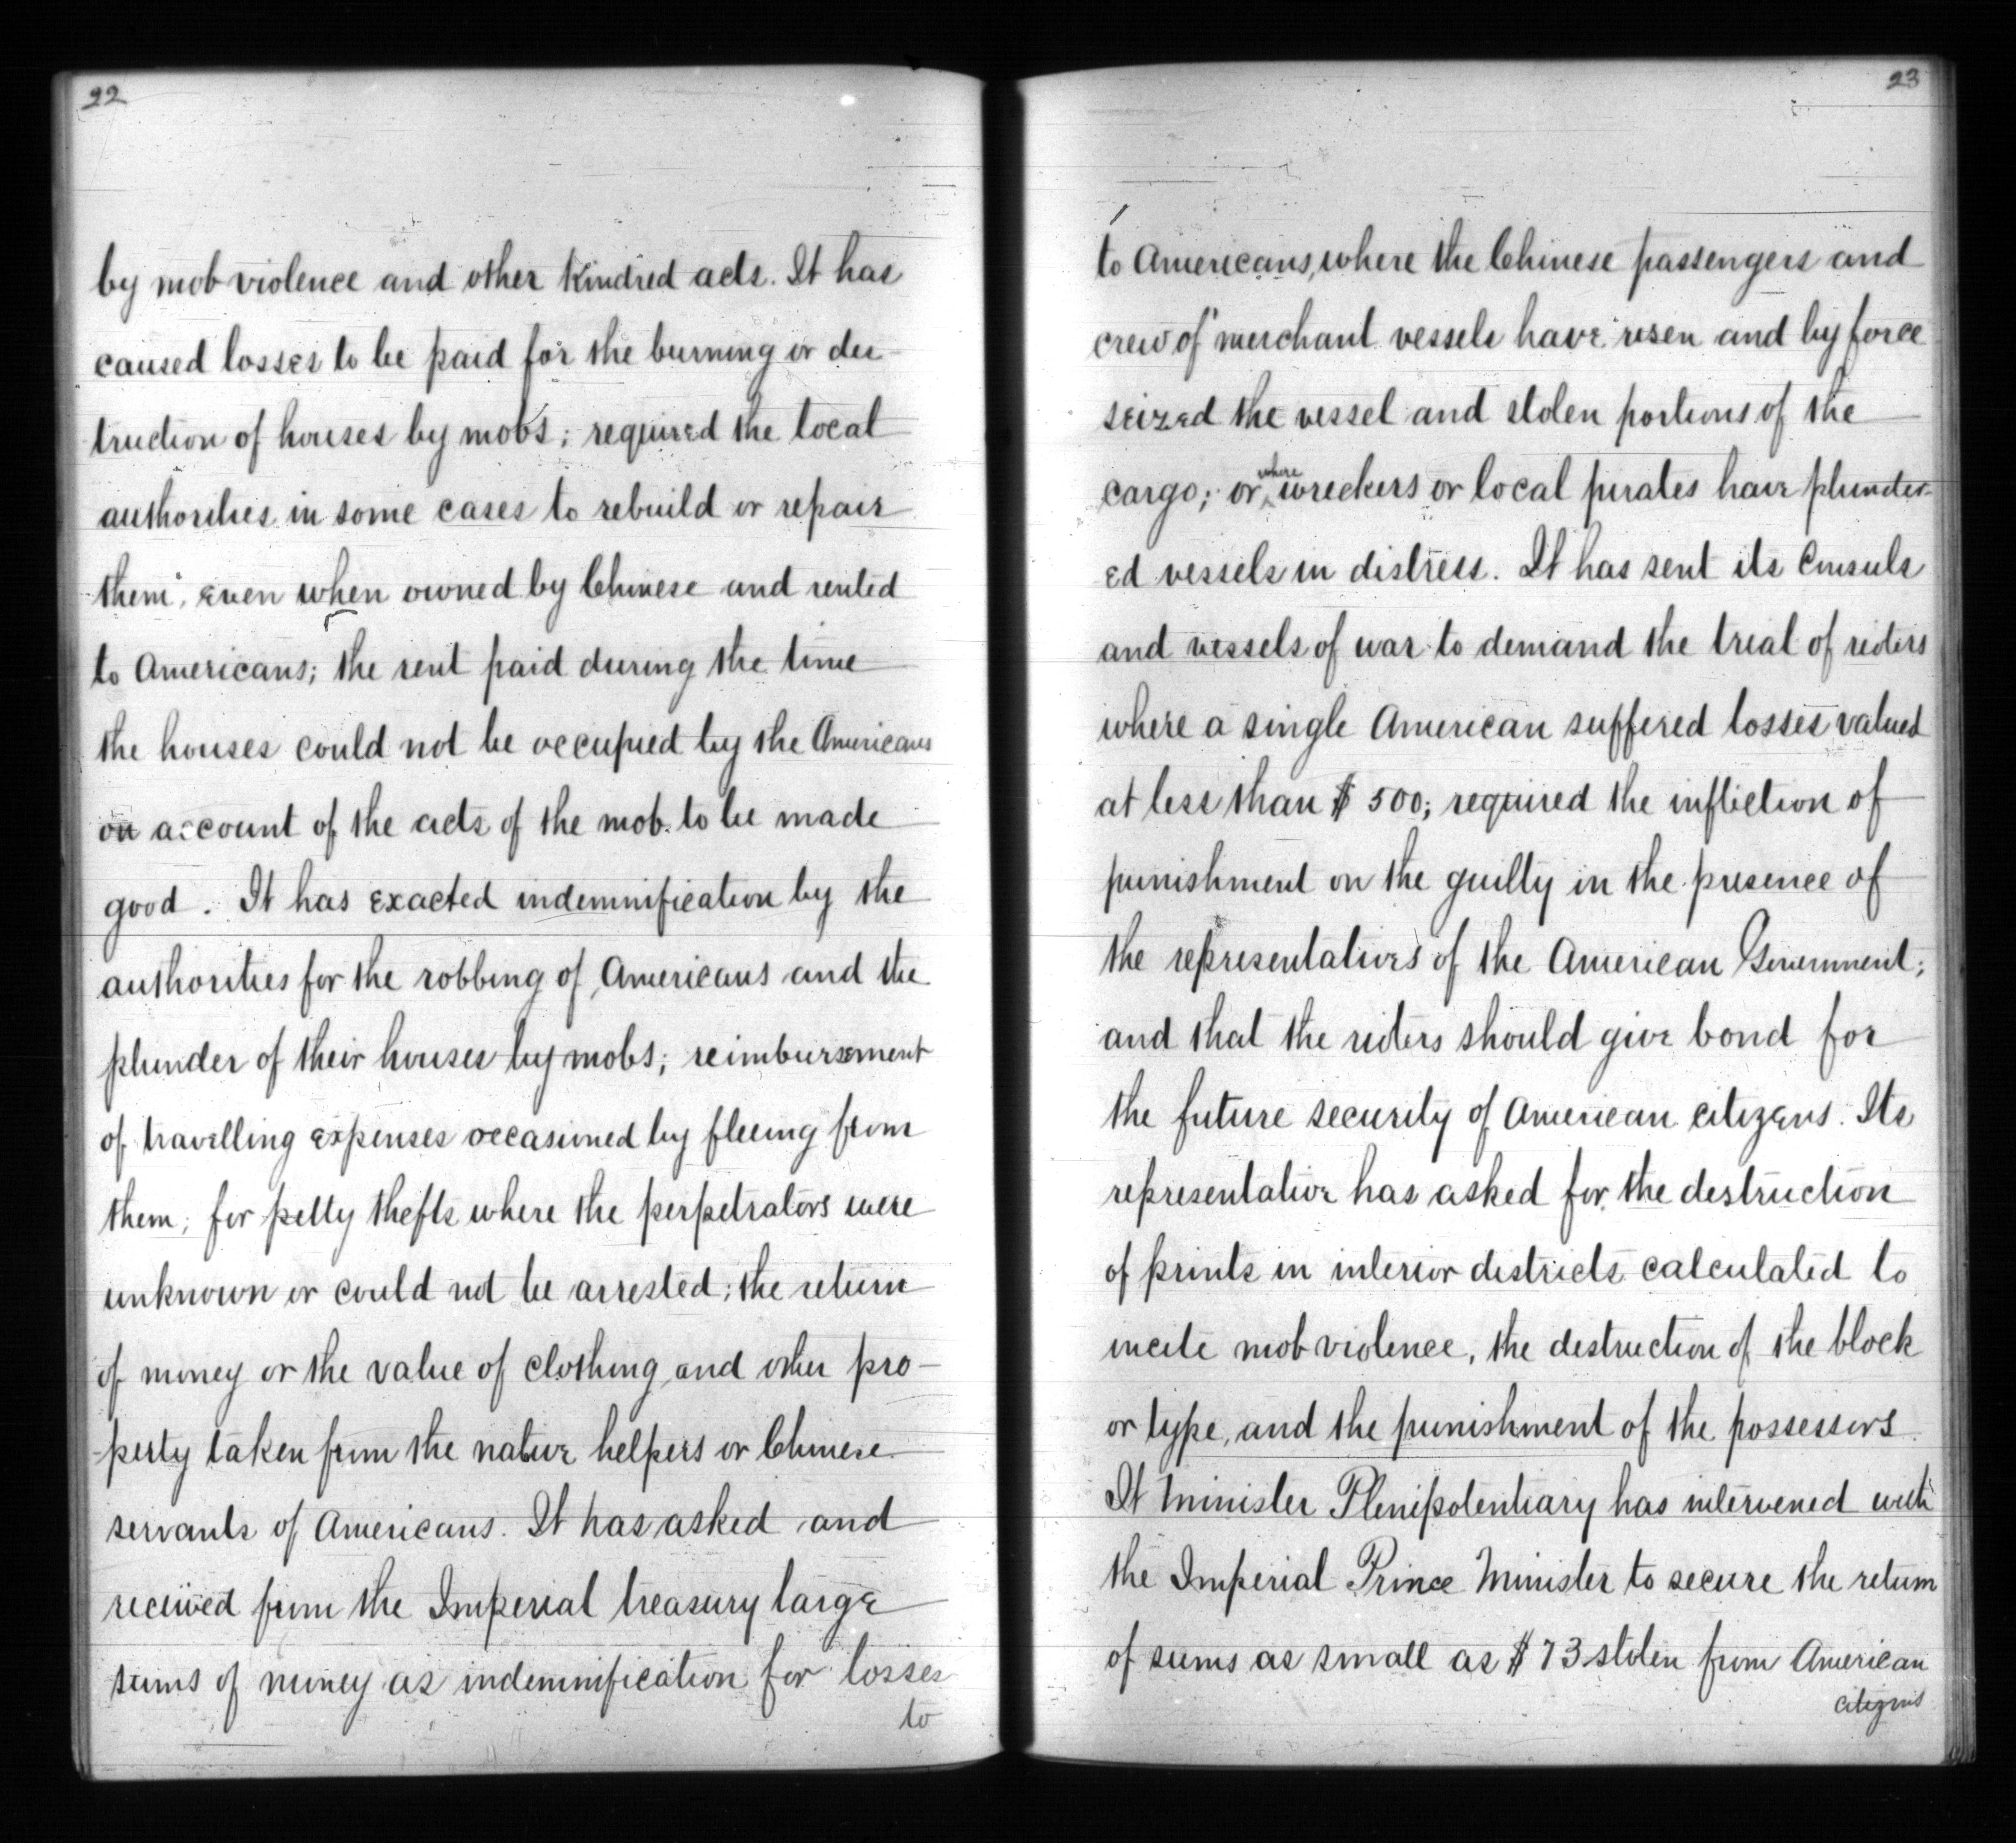 22
by mob violence and other kindred acts. It has
caused losses to be paid for the burning or des-
truction of houses by mobs; required the local
authorities in some cases to rebuild or repair
them, even when owned by Chinese and rented
to Americans; the rent paid during the time
the houses could not be occupied by the Americans
on account of the acts of the mob to be made
good. It has exacted indemnification by the
authorities for the robbing of Americans and the
plunder of their houses by mobs; reimbursement
of travelling expenses occasioned by fleeing from
them; for petty thefts where the perpetrators were
unknown or could not be arrested; the return
of money or the value of clothing and other pro-
perty taken from the native helpers or Chinese
servants of Americans. It has asked and
received from the Imperial treasury large
sums of money as indemnification for losses
to
23
to Americans, where the Chinese passengers and
crew of merchant vessels have risen and by force
seized the vessel and stolen portions of the
cargo; or where wreckers or local pirates have plunder-
ed vessels in distress. It has sent its Consuls
and vessels of war to demand the trial of rioters
where a single American suffered losses valued
at less than $500; required the infliction of
punishment on the guilty in the presence of
the representatives of the American Government;
and that the rioters should give bond for
the future security of American citizens. Its
representative has asked for the destruction
of prints in interior districts calculated to
incite mob violence, the destruction of the block
or type, and the punishment of the possessors.
It Minister Plenipotentiary has intervened with
the Imperial Prince Minister to secure the return
of sums as small as $73 stolen from American
citizens